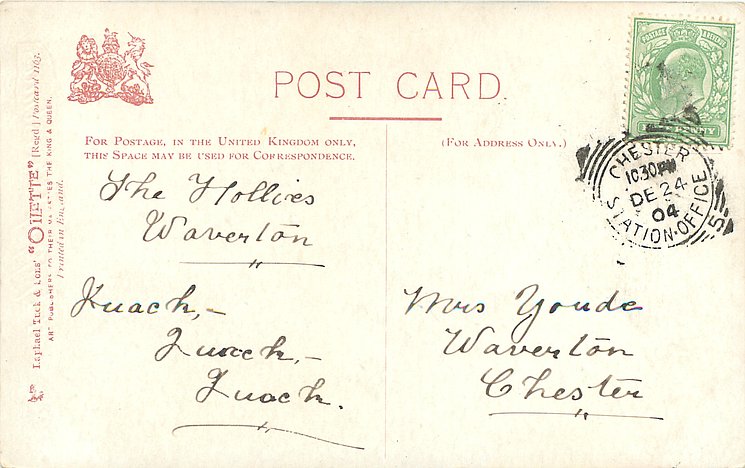 POST CARD.
FOR POSTAGE, IN THE UNITED KINGDOM ONLY,
THIS SPACE MAY BE USED FOR CORRESPONDENCE.
(FOR ADDRESS ONLY.)
The Hollies
Waverton
Quack,-
Quack,-
Quack.
Mrs Youde
Waverton
Chester
POSTAGE & REVENUE
PENNY
CHESTER
10.30PM
DE 24
04
STATION-OFFICE
5
Raphael Tuck & Sons' "OILETTE" [Regd.] Postcard
ART PUBLISHERS TO THEIR MAJESTIES THE KING & QUEEN.
Printed in England.